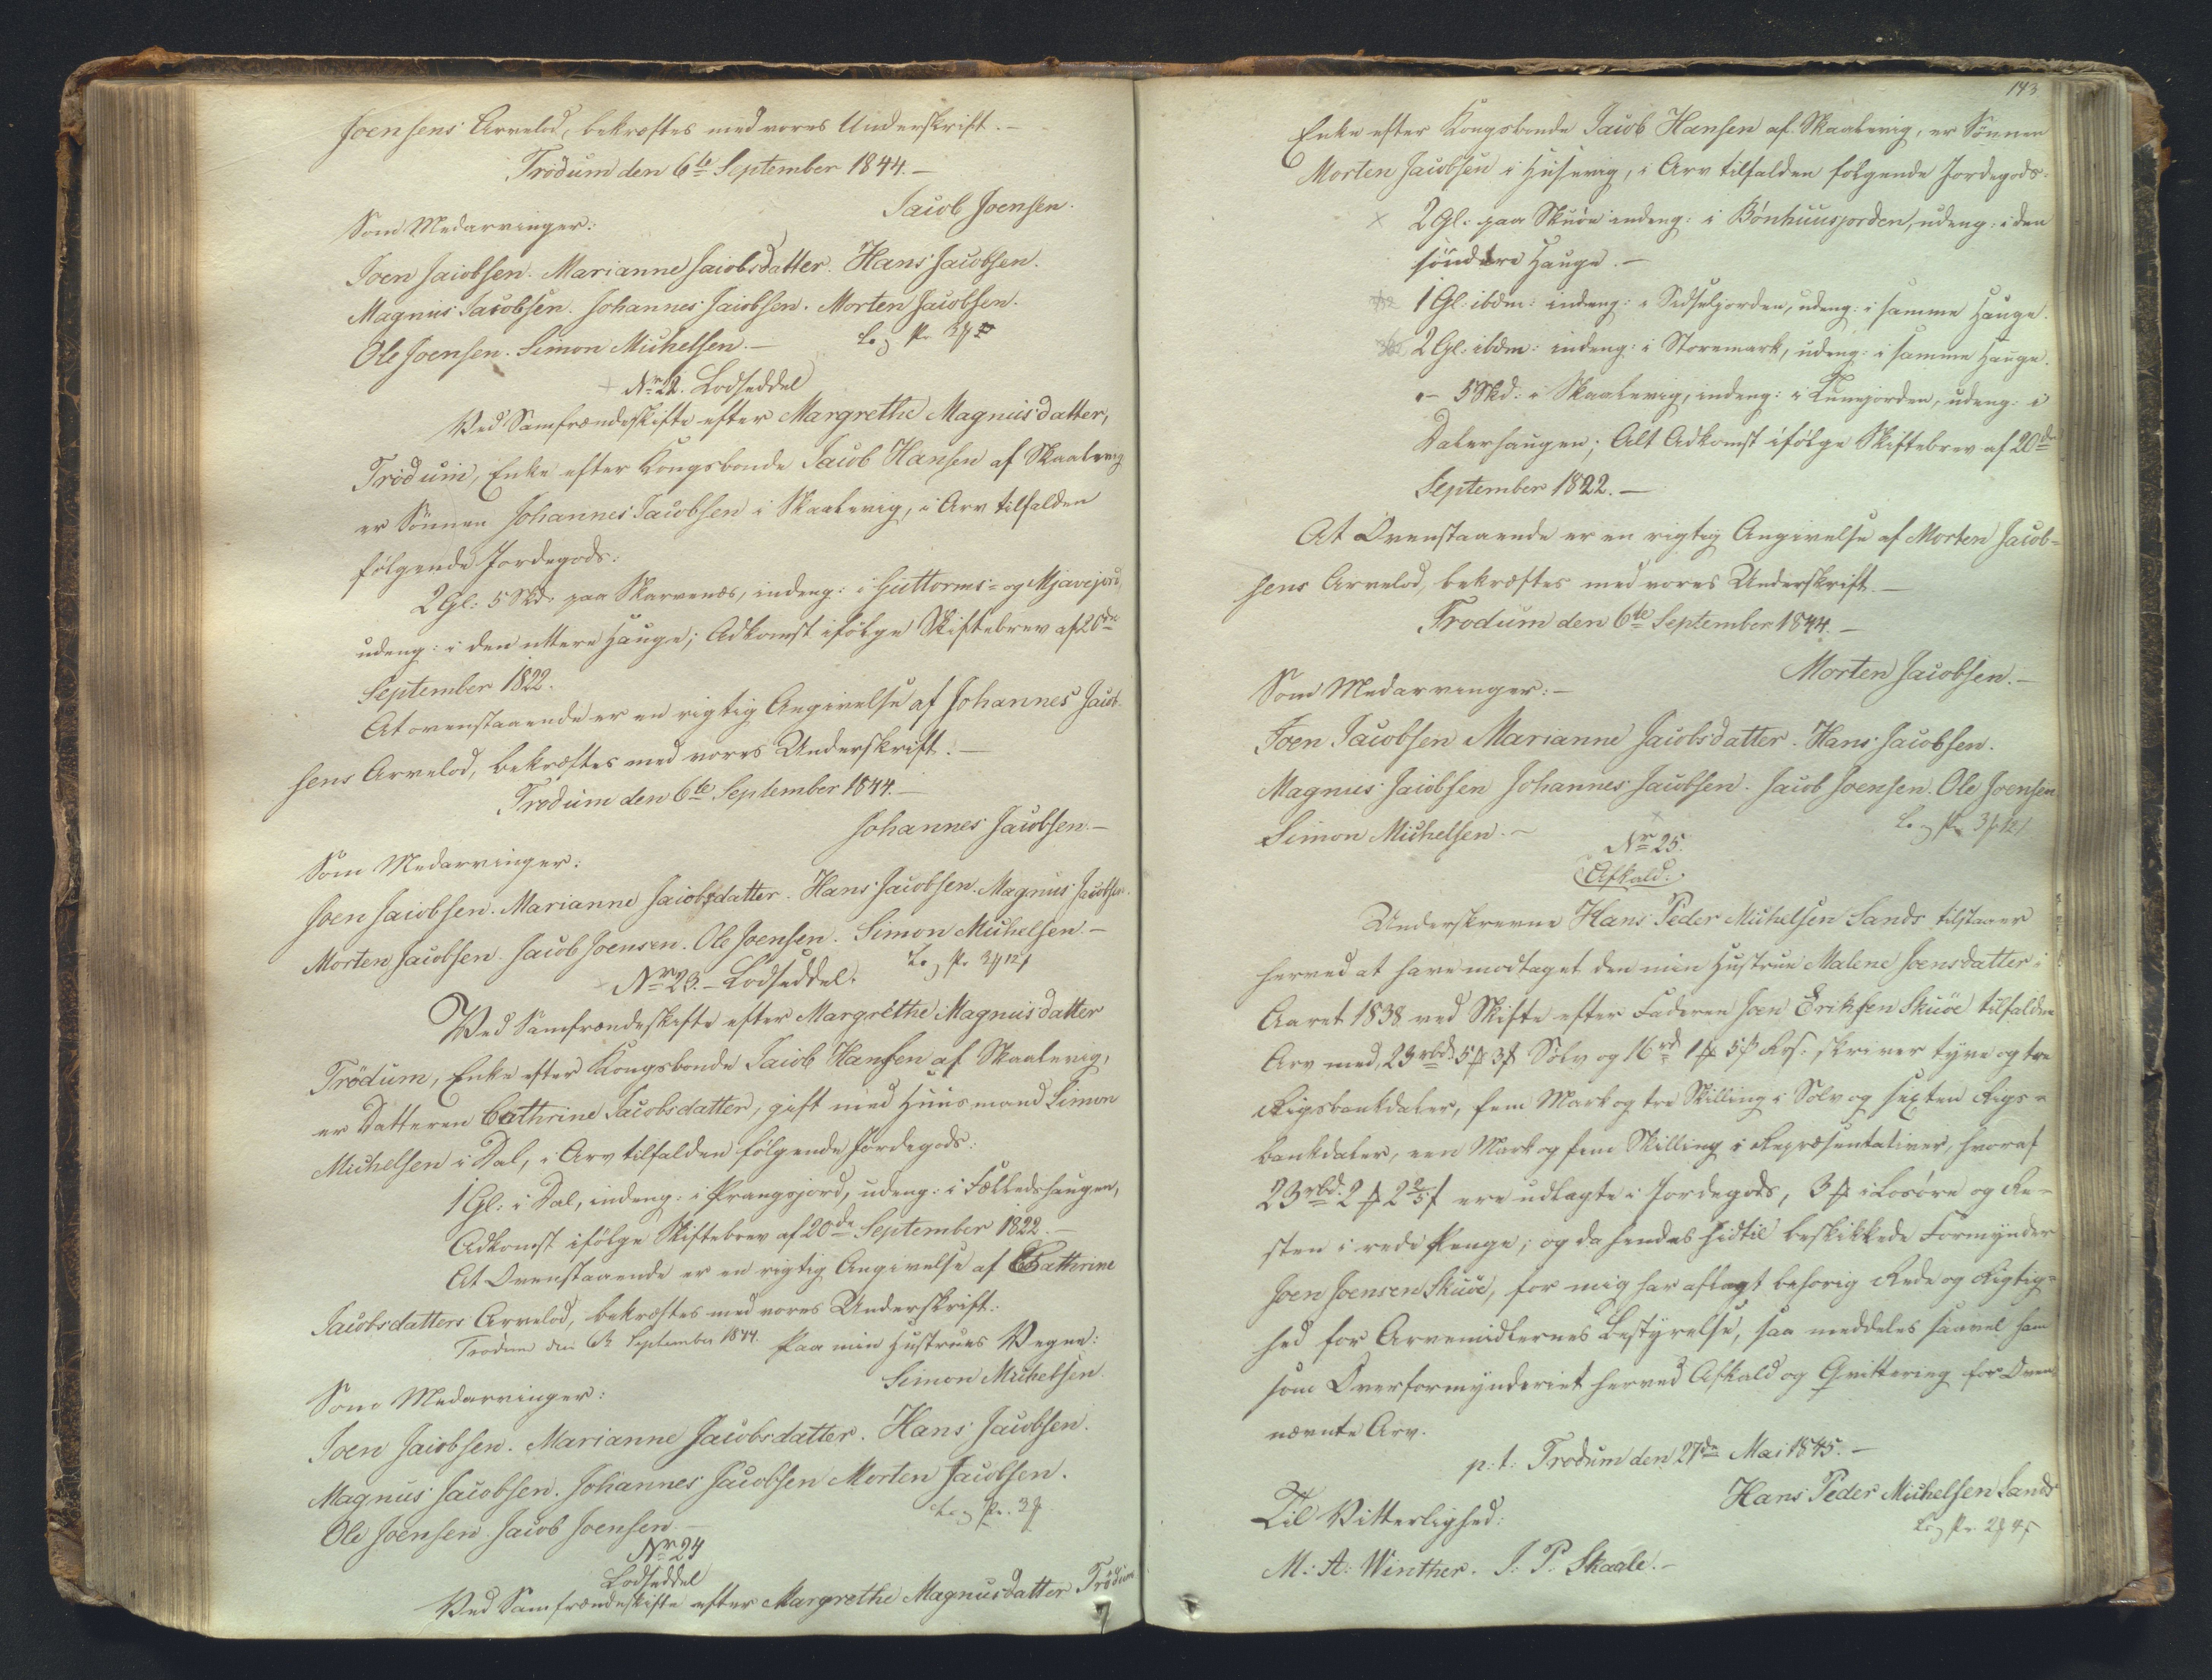 Joensens Arvelod, bekræftes med vores Underskrift.-
Trödum den 6te September 1844.-
Jacob Joensen.
Som Medarvinger:
Joen Jacobsen. Marianne Jacobsdatter. Hans Jacobsen.
Magnus Jacobsen. Johannes Jacobsen. Morten Jacobsen.
Ole Joensen. Simon Michelsen.-
No 22. Lodseddel
Ved Samfrændeskifte efter Margrethe Magnusdatter,
Trödum, Enke efter Kongsbonde Jacob Hansen af Skaalevig
er Sönnen Johannes Jacobsen i Skaalevig, i Arv tilfalden
følgende Jordegods:
2 Gl: 5 Skd: paa Skarvenæs, indeng: i Guttorms- og Mjavejord,
udeng: i den ottere Hauge; Adkomst ifölge Skiftebrev af 20de
September 1822.
At ovenstaaende er en rigtig Angivelse af Johannes Jacob-
sens Arvelod, bekræftes med vores Underskrift.-
Trödum den 6te September 1844.-
Johannes Jacobsen.-
Som Medarvinger:
Joen Jacobsen. Marianne Jacobsdatter. Hans Jacobsen. Magnus Jacobsen.
Morten Jacobsen. Jacob Joensen. Ole Joensen. Simon Michelsen.-
No 23.- Lodseddel.
Ved Samfrændeskifte efter Margrethe Magnusdatter
Trödum, Enke efter Kongsbonde Jacob Hansen af Skaalevig,
er Datteren Cathrine Jacobsdatter, gift med Huusmand Simon
Michelsen i Dal, i Arv tilfalden følgende Jordegods:
1 Gl: i Dal, indeng: i Prangsjord, udeng: i Fælledshaugen,
Adkomst ifölge Skiftebrev af 20de September 1822.-
At Ovenstaaende er en rigtig Angivelse af Cathrine
Jacobsdatters Arvelod, bekræftes med vores Underskrift:
Trödum den 6te September 1844. Paa min Hustrues Vegne:
Simon Michelsen.
Som Medarvinger:
Joen Jacobsen. Marianne Jacobsdatter. Hans Jacobsen.
Magnus Jacobsen. Johannes Jacobsen Morten Jacobsen.
Ole Joensen. Jacob Joensen.-
No 24
Lodseddel
Ved Samfrændeskifte efter Margrethe Magnusdatter Trödum
143
Enke efter Kongsbonde Jacob Hansen af Skaalevig, er Sönnen
Morten Jacobsen i Husevig, i Arv tilfalden følgende Jordegods:
× 2 Gl: paa Skuöe indeng: i Bönhuusjorden, udeng: i den
söndere Hauge.-
1 Gl: ibdm: indeng: i Sidseljorden, udeng: i samme Hauge.
2 Gl: ibdm: indeng: i Storemark, udeng: i samme Hauge.
"- 5 Skd: i Skaalevig, indeng: i Tunnjorden, udeng: i
Dalerhaugen; Alt Adkomst ifölge Skiftebrev af 20de
September 1822.-
At Ovenstaaende er en rigtig Angivelse af Morten Jacob-
sens Arvelod, bekræftes med vores Underskrift.-
Trodum den 6te September 1844.-
Morten Jacobsen.-
Som Medarvinger:-
Joen Jacobsen Marianne Jacobsdatter. Hans Jacobsen.
Magnus Jacobsen Johannes Jacobsen. Jacob Joensen. Ole Joensen
Simon Michelsen.-
No 25.
Afkald:
Underskrevne Hans Peder Michelsen Sands tilstaaer
herved at have modtaget den min Hustrue Malene Joensdatter i
Aaret 1838 ved Skifte efter Faderen Joen Eriksen Skuöe tilfaldne
Arv med, 23 rbd 5 ₻ 3 ß Sölv og 16 rd 1 ₻ 5 ß Rps: skriver tyve og tre
Rigsbankdaler, fem Mark og tre Skilling i Sölv og sexten Rigs-
bankdaler, een Mark og fem Skilling i Repræsentativer, hvoraf
23 rbd. 2 ₻ 2 2/5 ß ere udlagte i Jordegods, 3 ₻ i Losøre og Re-
sten i rede Penge; og da hendes hidtil beskikkede Formynder
Joen Joensen Skuöe, for mig har aflagt behörig Rede og Rigtig-
hed for Arvemidlernes Bestyrelse, saa meddeles saavel ham
som Overformynderiet herved Afkald og Qvittering for Oven-
nævnte Arv.
p: t: Trödum den 27de Mai 1845.-
Hans Peder Michelsen Sands
Til Vitterlighed:
M: A: Winther. J. P. Skaale.-